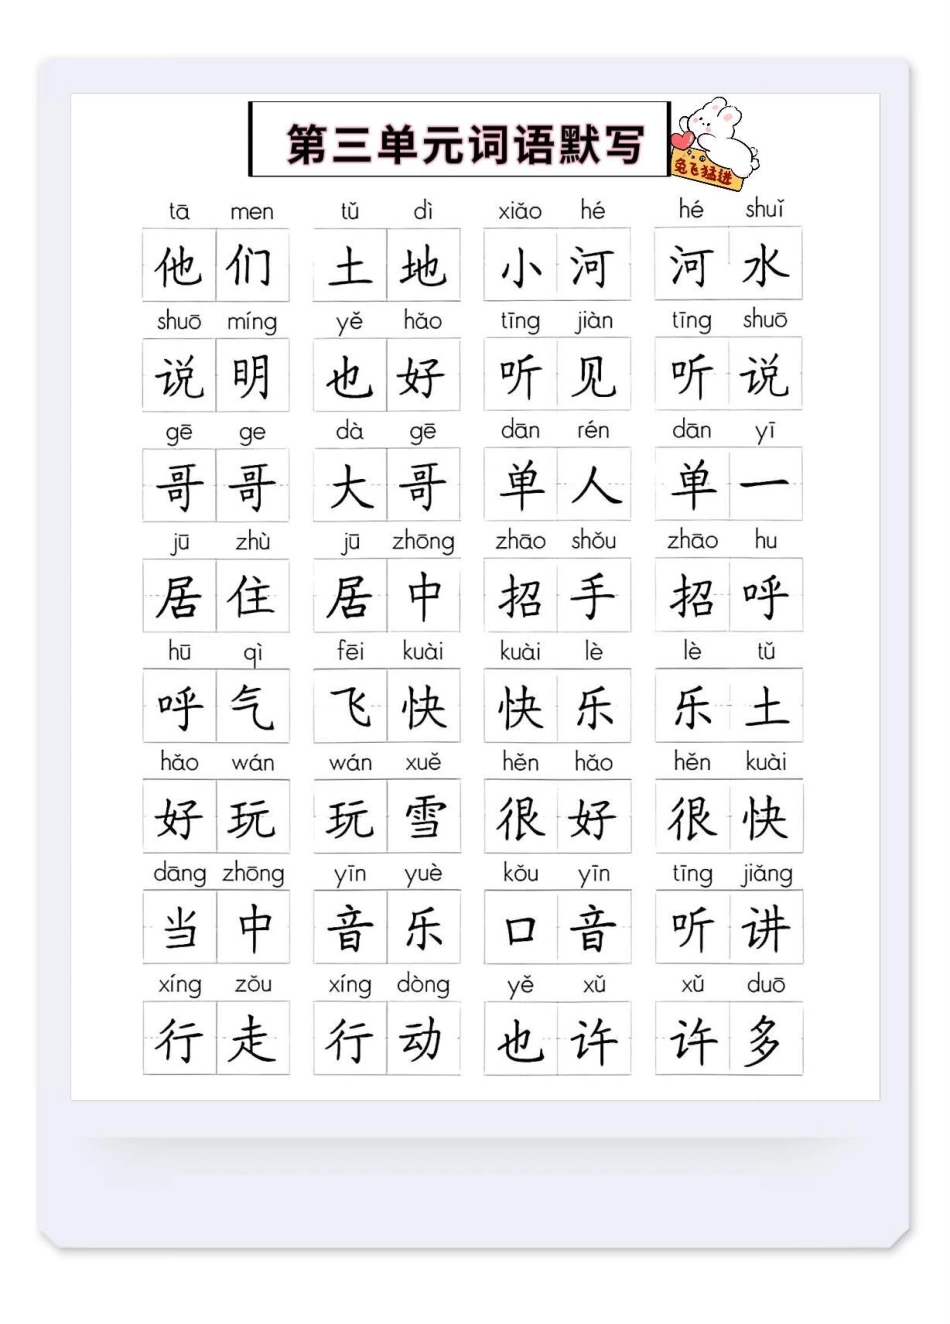 第三单元词语默写
兔飞猛进
tā men tǔ dì xiǎo hé hé shuǐ
他们 土地 小河 河水
shuō míng yě hǎo tīng jiàn tīng shuō
说明 也好 听见 听说
gē ge dà gē dān rén dān yī
哥哥 大哥 单人 单一
jū zhù jū zhōng zhāo shǒu zhāo hu
居住 居中 招手 招呼
hū qì fēi kuài kuài lè lè tǔ
呼气 飞快 快乐 乐土
hǎo wán wán xuě hěn hǎo hěn kuài
好玩 玩雪 很好 很快
dāng zhōng yīn yuè kǒu yīn tīng jiǎng
当中 音乐 口音 听讲
xíng zǒu xíng dòng yě xǔ xǔ duō
行走 行动 也许 许多